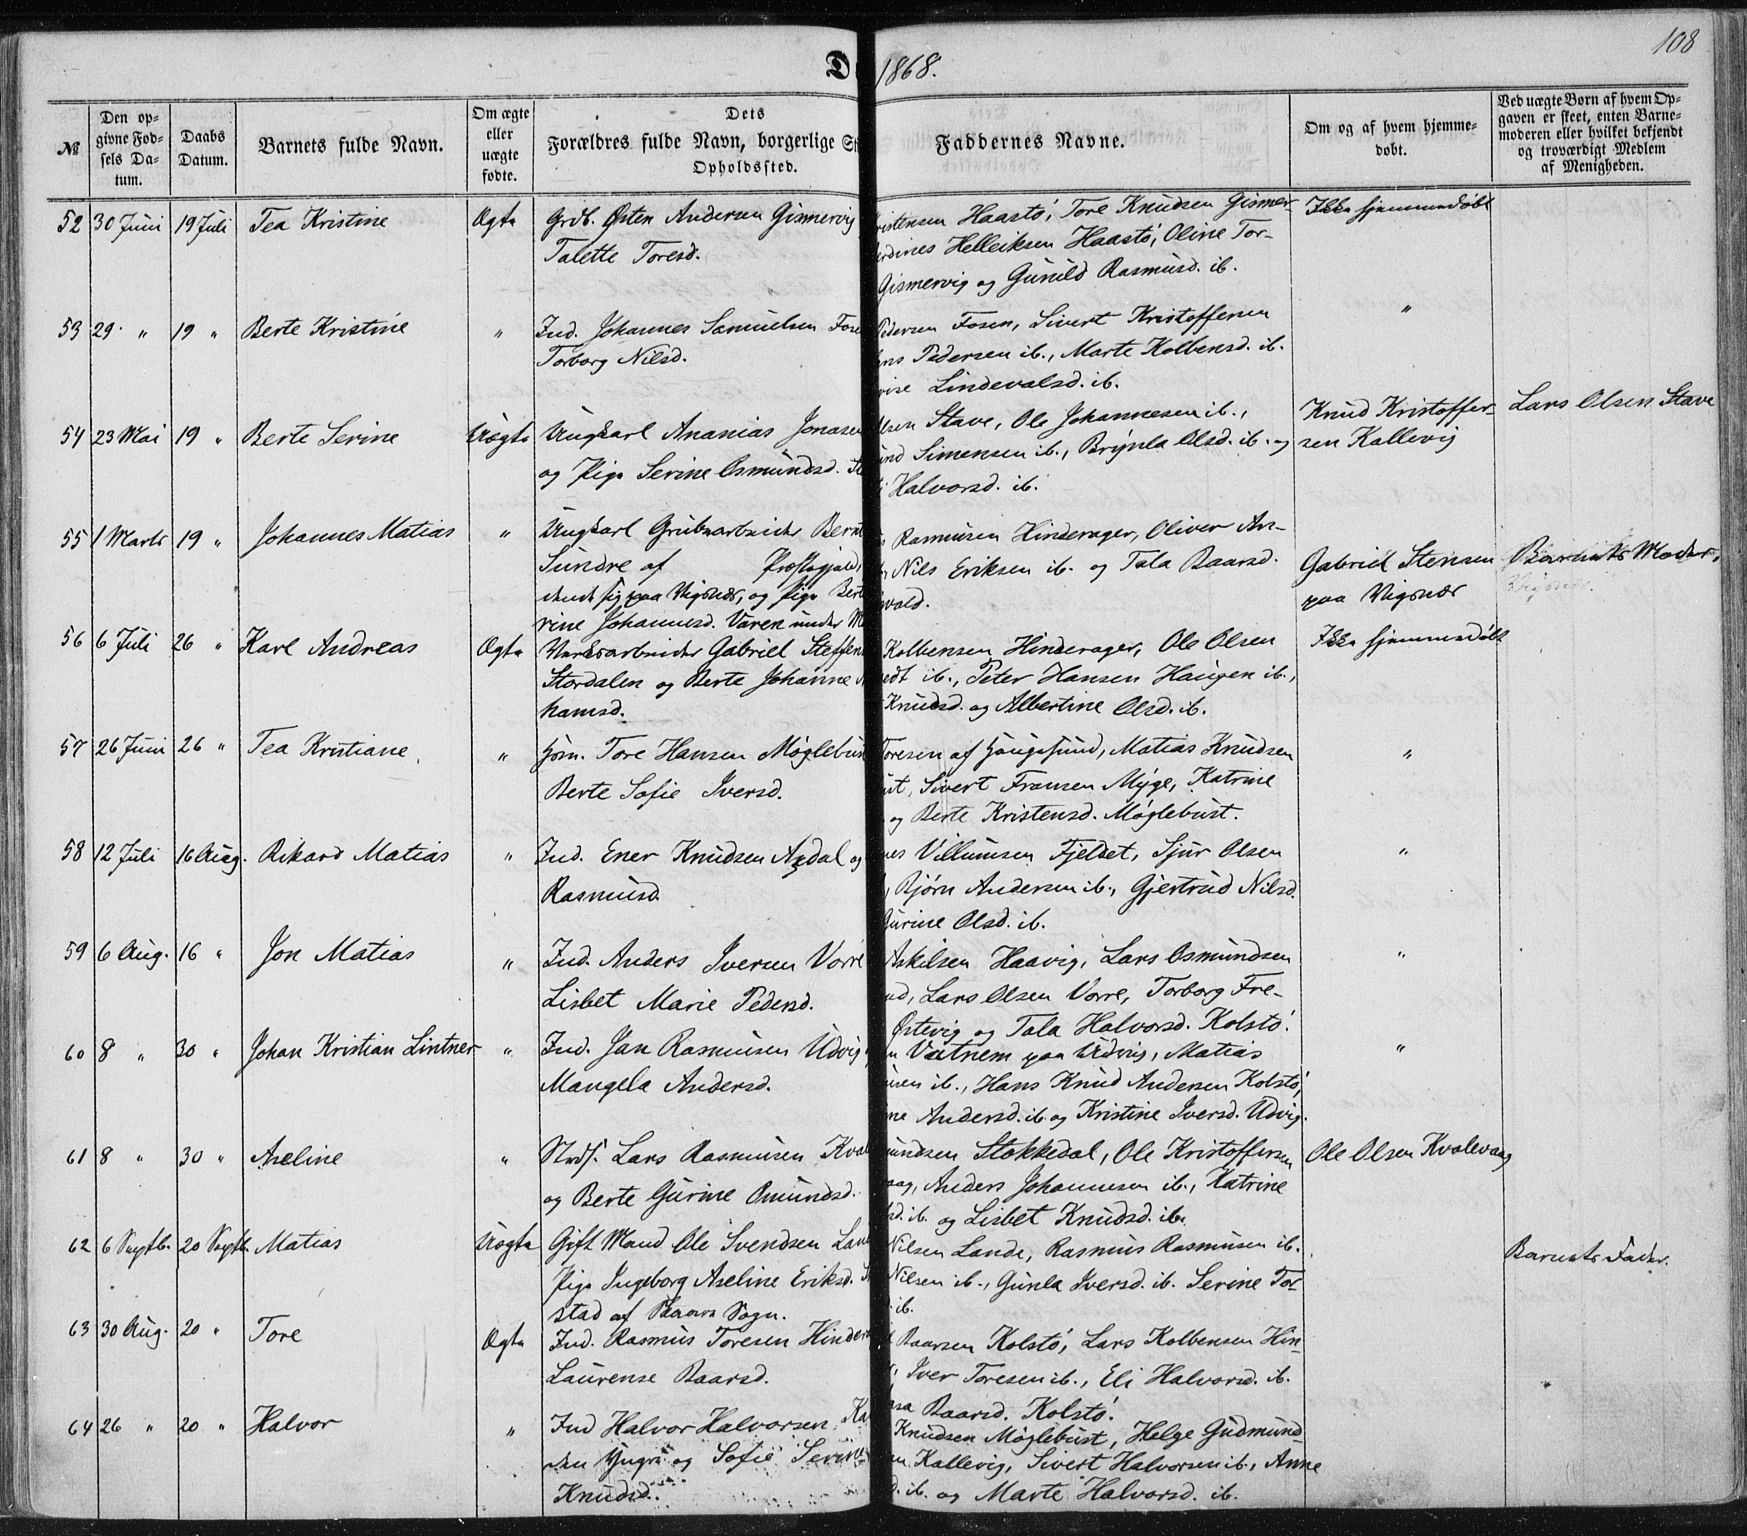 108
D 1868.
№
Den op-
givne Fød-
sels Da-
tum.
Daabs
Datum.
Barnets fulde Navn.
Om ægte
eller
uægte
fødte.
Dets
Forældres fulde Navn, borgerlige St
Opholdssted.
Faddernes Navne.
Om og af hvem hjemme-
døbt.
Ved uægte Børn af hvem Op-
gaven er skeet, enten Barne-
moderen eller hvilket bekjendt
og troværdigt Medlem
af Menigheden.
52 30 Juni 19 Juli Tea Kristine Ægte Grdb. Østen Andersen Gismervig
Talette Toresd.
ristensen Haastø, Tore Knudsen Gismer-
rdines Helleiksen Haastø, Oline Tor-
Gismervig og Gunild Rasmusd. ib.
Ikke hjemmedøbt
53 29 " 19 " Berte Kristine " Ind. Johannes Samuelsen Fose
Torborg Nilsd.
Pedersen Fosen, Sivert Kristoffersen
ns Pedersen ib., Marte Kolbensd. ib.
vise Lindevalsd. ib.
"
54 23 Mai 19 " Berte Serine Uægte Ungkarl Ananias Jonasen
og Pige Serine Osmundsd. St
lsen Stave, Ole Johannesen ib.,
und Simensen ib., Brynla Olsd. ib. og
i Halvorsd. ib.
Knud Kristoffer-
sen Kallevig
Lars Olsen Stave
55 1 Marts 19 " Johannes Matias " Ungkarl Grubearbeider Bernt
Sundre af Præstegjeld,
dende sig paa Vigsnæs, og Pige Bert
rine Johannesd. Varen under
Rasmusen Hinderager, Oliver An-
Nils Eriksen ib. og Tala Baarsd.
vald.
Gabriel Stensen
paa Vigsnæs
Barnets Moder,
56 6 Juli 26 " Karl Andreas Ægte Værksarbeider Gabriel Steffen
Stordalen og Berte Johanne
hamsd.
Kolbensen Hinderager, Ole Olsen
edt ib., Peter Hansen Haugen ib.,
Knudsd. og Albertine Olsd. ib.
Ikke hjemmedøbt
57 26 Juni 26 " Tea Kristiane " Hsm. Tore Hansen Møglebust
Berte Sofie Iversd.
Toresen af Haugesund, Matias Knudsen
ust, Sivert Fransen Myge, Katrine
og Berte Kristensd. Møglebust.
"
58 12 Juli 16 Aug. Rikard Matias " Ind. Ener Knudsen Aadal og
Rasmusd.
nes Villumsen Fjeldet, Sjur Olsen
, Bjørn Andersen ib., Gjertrud Nilsd.
Gurine Olsd. ib.
"
59 6 Aug. 16 " Jon Matias " Ind. Anders Iversen Vorre
Lisbet Marie Pedersd.
Askilsen Haavig, Lars Osmundsen
ud, Lars Olsen Vorre, Torborg Fre-
Østevig og Tala Halvorsd. Kolstø.
"
60 8 " 30 " Johan Kristian Lintner " Ind. Jan Rasmusen Udvig
Mangela Andersd.
n Vatnem paa Udvig, Matias
usen ib., Hans Knud Andersen Kolstø,
ne Andersd. ib. og Kristine Iversd. Udvig.
"
61 8 " 30 " Aseline " Strds. Lars Rasmusen Kval
og Berte Gurine Omundsd.
mundsen Stokkedal, Ole Kristoffersen
aag, Anders Johannesen ib., Katrine
sd. ib. og Lisbet Knudsd. ib.
Ole Olsen Kvalevaag
62 6 Septb. 20 Septb. Matias Uægte Gift Mand Ole Svendsen Lan
Pige Ingeborg Aseline Eriksd.
stad af Skaare Sogn.
Nilsen Lande, Rasmus Rasmusen ib.
Nilsen ib., Gunla Iversd. ib. Serine Tor-
ib.
Barnets Fader.
63 30 Aug. 20 " Tore Ægte Ind. Rasmus Toresen Hinder
Laurense Baarsd.
Baarsen Kolstø, Lars Kolbensen Hin-
, Iver Toresen ib., Eli Halvorsd. ib.
sa Baarsd. Kolstø.
64 26 " 20 " Halvor " Ind Halvor Halvorsen Ka
den Yngre og Sofie Serine
Knudsd.
Knudsen Møglebust, Helge Gudmund-
en Kallevig, Sivert Halvorsen ib., Anne
d. ib. og Marte Halvorsd. ib.